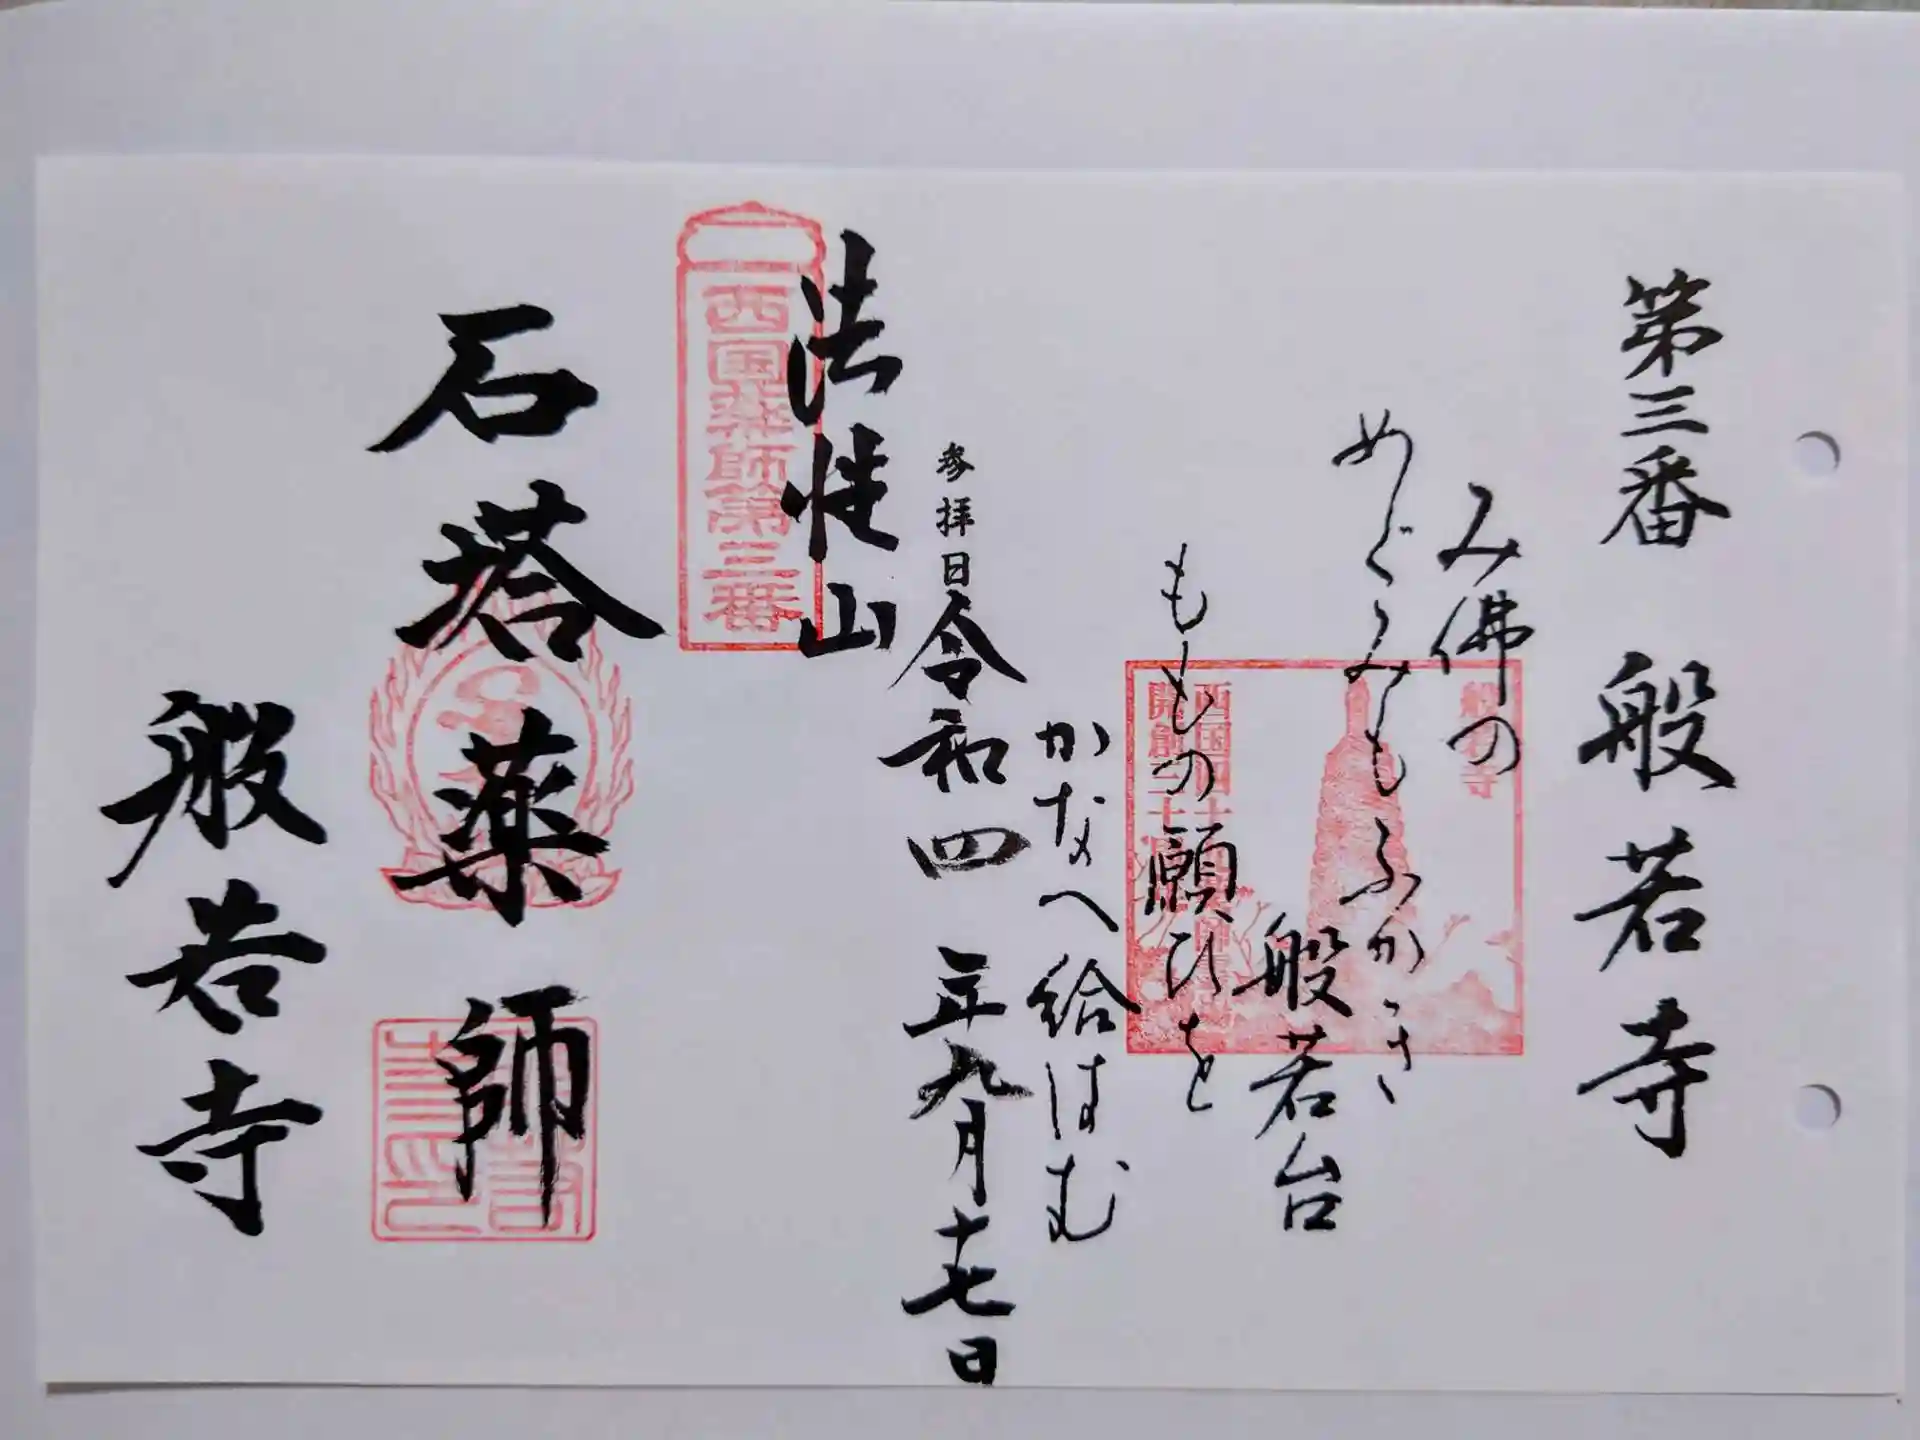 第三番 般若寺
み佛の
めぐみもふかき
般若台
ももの願ひを
かなへ給はむ
般若寺
西国四十
開創三十
参拝日令和四年九月十七日
法性山
西国薬師第三番
石塔薬師
般若寺